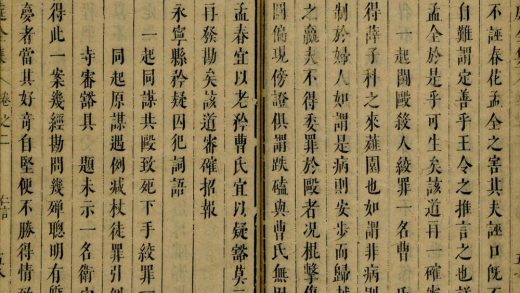 不誣春花孟全之害其夫誣口旣不
自難謂定善乎王令之推言之也
孟全於是乎可生矣該道再一確審
一起鬪毆殺人絞罪一名曹
得薛子科之來薙園也如謂非病則
制於婦人如謂是病則安步而歸
之羸夫不得委罪於毆者况棍擊傷
圖傷現傍證俱謂跌磕與曹氏無
孟春宜以老矜曹氏宜以疑豁莫
再發勘矣該道審確招報
永寧縣矜疑囚犯詞語
一起同謀共毆致死下手絞罪一
同起原謀遇例減杖徒罪引例
寺審豁具 題未示一名衛
得此一案幾經勘問幾殫聰明有
憂者當其好奇自堅便不勝得情
卷之二